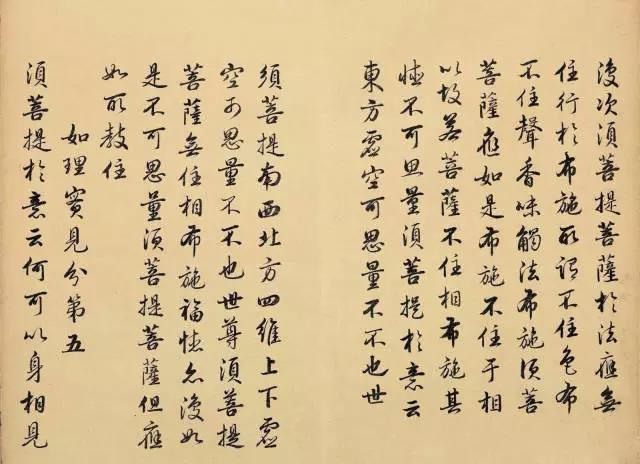 復次須菩提菩薩於法應無
住行於布施所謂不住色布
不住聲香味觸法布施須菩
菩薩應如是布施不住于相
以故若菩薩不住相布施其
德不可思量須菩提於意云
東方虛空可思量不不也世
須菩提南西北方四維上下虛
空可思量不不也世尊須菩提
菩薩無住相布施福德亦復如
是不可思量須菩提菩薩但應
如所教住
如理實見分第五
須菩提於意云何可以身相見